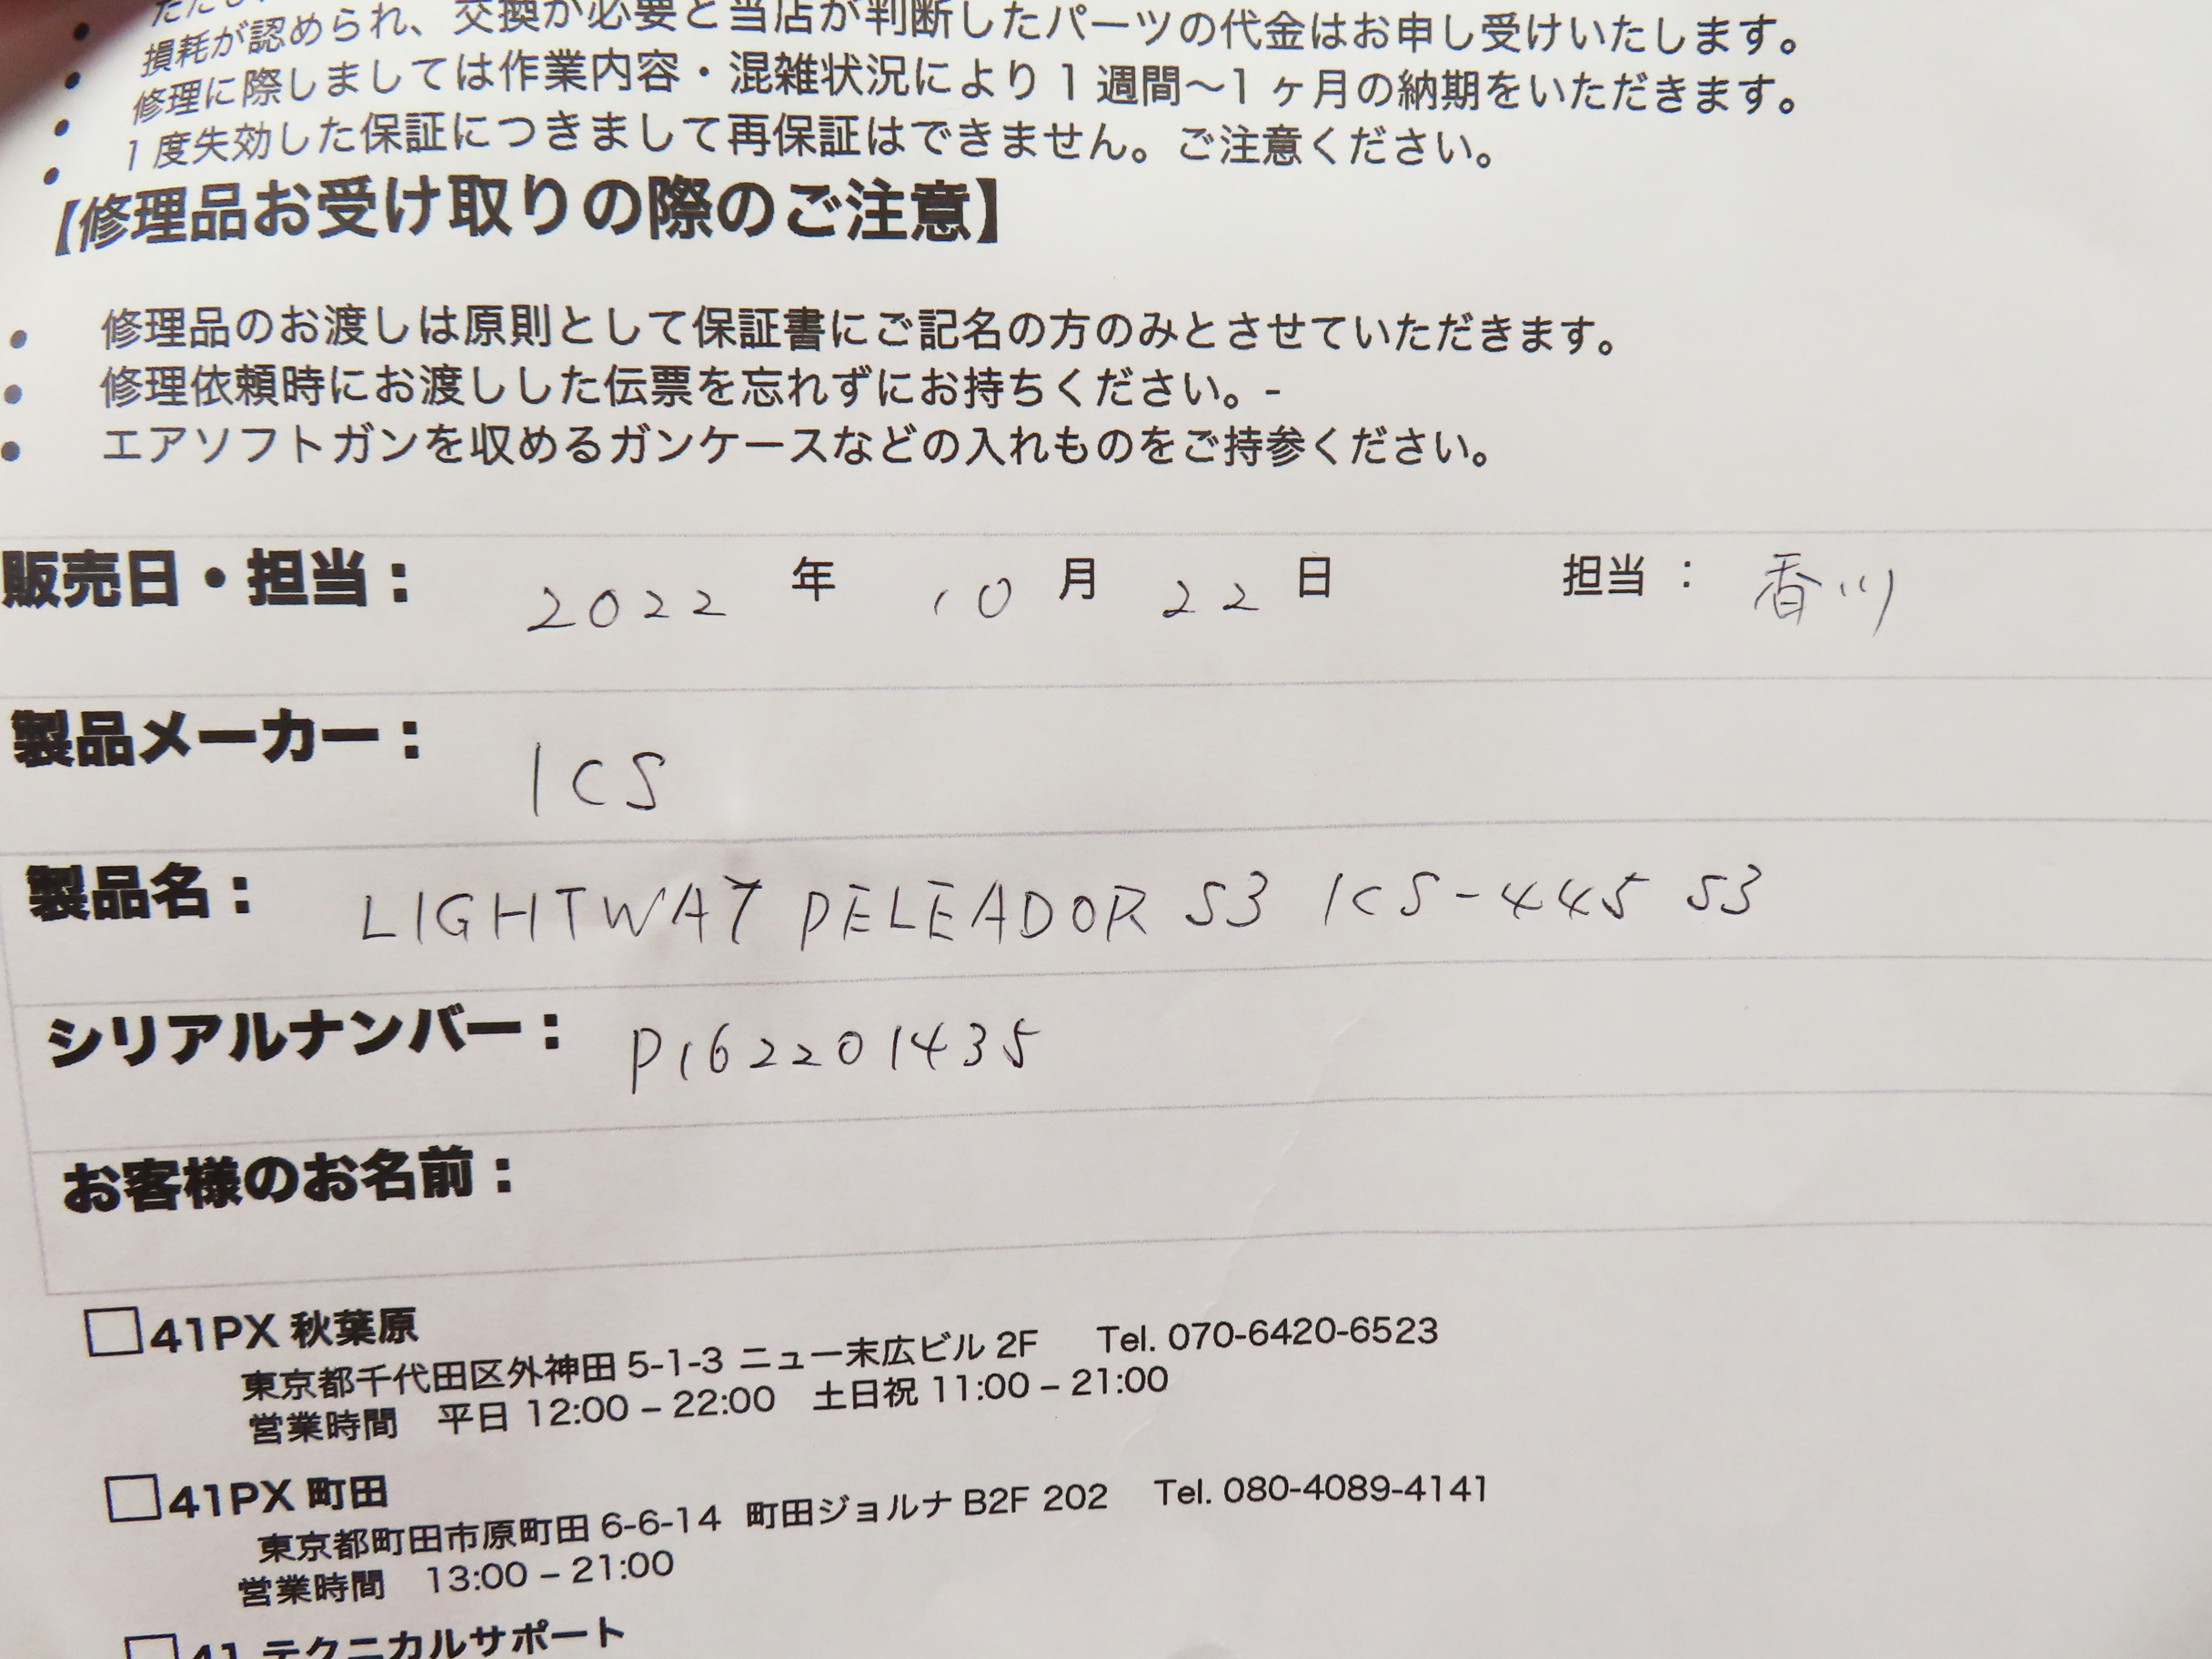 損耗が認められ、交換が必要と当店が判断したパーツの代金はお申し受けいたします。
修理に際しましては作業内容・混雑状況により1週間～1ヶ月の納期をいただきます。
1度失効した保証につきまして再保証はできません。ご注意ください。
【修理品お受け取りの際のご注意】
• 修理品のお渡しは原則として保証書にご記名の方のみとさせていただきます。
• 修理依頼時にお渡しした伝票を忘れずにお持ちください。-
• エアソフトガンを収めるガンケースなどの入れものをご持参ください。
販売日・担当： 2022 年 10 月 22 日 担当： 香川
製品メーカー： ICS
製品名： LIGHTWAY PELEADOR S3 ICS-445 S3
シリアルナンバー： P162201435
お客様のお名前：
□41PX 秋葉原
東京都千代田区外神田 5-1-3 ニュー末広ビル 2F Tel. 070-6420-6523
営業時間 平日 12:00 – 22:00 土日祝 11:00 – 21:00
□41PX 町田
東京都町田市原町田 6-6-14 町田ジョルナ B2F 202 Tel. 080-4089-4141
営業時間 13:00 – 21:00
□41 テクニカルサポート